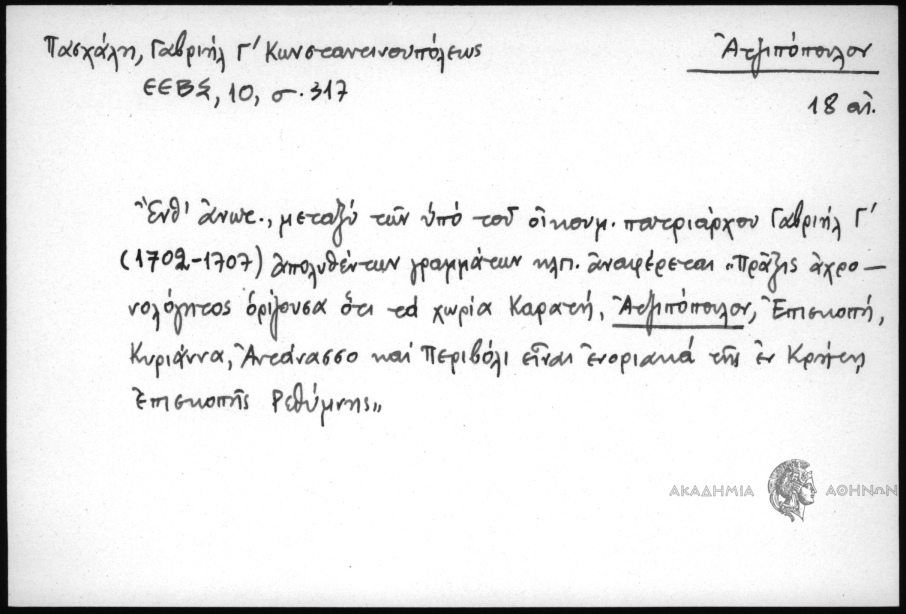 Πασχάλη, Γαβριήλ Γ' Κωνσταντινουπόλεως
ΕΕΒΣ, 10, σ. 317
Ἀτζιπόπουλον
18 αἰ.
Ἔνθ' ἄνωτ., μεταξύ τῶν ὑπό τοῦ οἰκουμ. πατριάρχου Γαβριήλ Γ'
(1702-1707) ἀπολυθέντων γραμμάτων κλπ. ἀναφέρεται „Πρᾶξις ἀχρο-
νολόγητος ὁρίζουσα ὅτι τά χωρία Καρατή, Ἀτζιπόπουλον, Ἐπισκοπή,
Κυριάννα, Ἀντάνασσο καί Περιβόλι εἶναι ἐνοριακά τῆς ἐν Κρήτῃ
Ἐπισκοπῆς Ρεθύμνης„
ΑΚΑΔΗΜΙΑ ΑΘΗΝΩΝ